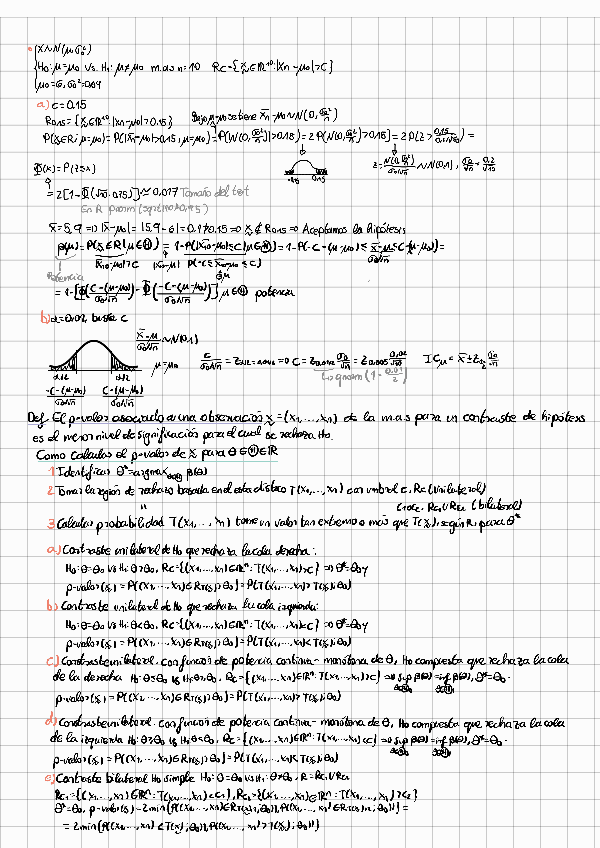 X∼N(μ,σ₀²)
H₀: μ=μ₀ vs. H₁: μ≠μ₀ m.a.s n=10 Rc={x∈ℝ¹⁰: |x̄n-μ₀|>C}
μ₀=6, σ₀²=0.04
a) c=0.15
R0.15={x∈ℝ¹⁰: |x̄n-μ₀|>0.15} Bajo μ=μ₀ se tiene x̄n-μ₀∼N(0,σ₀²/n)
P(x∈R; μ=μ₀)=P(|x̄n-μ₀|>0.15, μ=μ₀)=P(|N(0,σ₀²/n)|>0.15)=2P(N(0,σ₀²/n)>0.15)=2P(Z>0.15/(0.2/√10))=
Φ(x)=P(Z≤x) Z=N(0,σ₀²/n)/(σ₀/√n)∼N(0,1), σ₀/√n=0.2/√n
=2[1-Φ(√10·0.75)]≃0.017 Tamaño del test
En R pnorm(sqrt(10)*0.75)
x̄=5.9 ⇒ |x̄-μ₀|=|5.9-6|=0.1≯0.15 ⇒ x∉R0.15 ⇒ Aceptamos la hipótesis
β(μ)=P(x∈R|μ∈Θ)=1-P(|x̄n-μ₀|≤C|μ∈Θ)=1-P(-C-(μ-μ₀)≤ x̄-μ/(σ₀/√n) ≤C-(μ-μ₀))=
|x̄n-μ₀|>C P(-C≤x̄n-μ₀≤C)
Potencia
=1-[Φ((C-(μ-μ₀))/(σ₀/√n))-Φ((-C-(μ-μ₀))/(σ₀/√n))], μ∈Θ potencia
b) α=0.01, busca c
(x̄-μ)/(σ₀/√n)∼N(0,1)
μ=μ₀
α/2 α/2
-C-(μ-μ₀)/(σ₀/√n) C-(μ-μ₀)/(σ₀/√n)
qnorm(1-0.01/2)
Def. El p-valor asociado a una observación x=(x₁,...,xn) de la m.a.s para un contraste de hipótesis
es el menor nivel de significación para el cual se rechaza H₀.
Como calcular el p-valor de x para θ∈Θ⊂ℝ
1 Identificar θ*=argmax β(θ)
2 Tomar la región de rechazo basada en el estadístico T(x₁,...,xn) con umbral c, Rc (unilateral)
(bilateral)
3 Calcular probabilidad T(x₁,...,xn) tome un valor tan extremo o más que T(x), según R, para θ*
a) Contraste unilateral de H₀ que rechaza la cola derecha:
H₀: θ=θ₀ vs H₁: θ>θ₀, Rc={(x₁,...,xn)∈ℝⁿ: T(x₁,...,xn)>C} ⇒ θ*=θ₀ y
p-valor(x)=P((x₁,...,xn)∈R_T(x); θ₀)=P(T(x₁,...,xn)>T(x); θ₀)
b) Contraste unilateral de H₀ que rechaza la cola izquierda:
H₀: θ=θ₀ vs H₁: θ<θ₀, Rc={(x₁,...,xn)∈ℝⁿ: T(x₁,...,xn)<C} ⇒ θ*=θ₀ y
p-valor(x)=P((x₁,...,xn)∈R_T(x); θ₀)=P(T(x₁,...,xn)<T(x); θ₀)
c) Contraste unilateral, con función de potencia continua-monótona de θ, H₀ compuesta que rechaza la cola
de la derecha H₀: θ≤θ₀ vs H₁: θ>θ₀, Rc={(x₁,...,xn)∈ℝⁿ: T(x₁,...,xn)>C} ⇒ sup β(θ)=inf β(θ), θ*=θ₀.
p-valor(x)=P((x₁,...,xn)∈R_T(x); θ₀)=P(T(x₁,...,xn)>T(x); θ₀)
d) Contraste unilateral, con función de potencia continua-monótona de θ, H₀ compuesta que rechaza la cola
de la izquierda H₀: θ≥θ₀ vs H₁: θ<θ₀, Rc={(x₁,...,xn)∈ℝⁿ: T(x₁,...,xn)<C} ⇒ sup β(θ)=inf β(θ), θ*=θ₀.
p-valor(x)=P((x₁,...,xn)∈R_T(x); θ₀)=P(T(x₁,...,xn)<T(x); θ₀)
e) Contraste bilateral H₀ simple H₀: θ=θ₀ vs H₁: θ≠θ₀, R=Rc₁∪Rc₂
Rc₁={(x₁,...,xn)∈ℝⁿ: T(x₁,...,xn)<C₁}, Rc₂={(x₁,...,xn)∈ℝⁿ: T(x₁,...,xn)>C₂}
θ*=θ₀, p-valor(x)=2min{P((x₁,...,xn)∈R_T(x)₁; θ₀), P((x₁,...,xn)∈R_T(x)₂; θ₀)}=
=2min{P(T(x₁,...,xn)<T(x); θ₀), P(T(x₁,...,xn)>T(x); θ₀)}